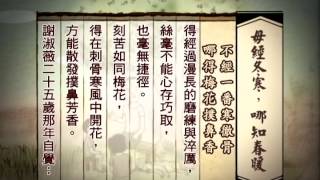 毋經冬寒，哪知春暖
不經一番寒徹骨
哪得梅花撲鼻香
得經過漫長的磨練與淬厲，
絲毫不能心存巧取，
也毫無捷徑。
刻苦如同梅花，
得在刺骨寒風中開花，
方能散發撲鼻芳香。
謝淑薇二十五歲那年自覺…